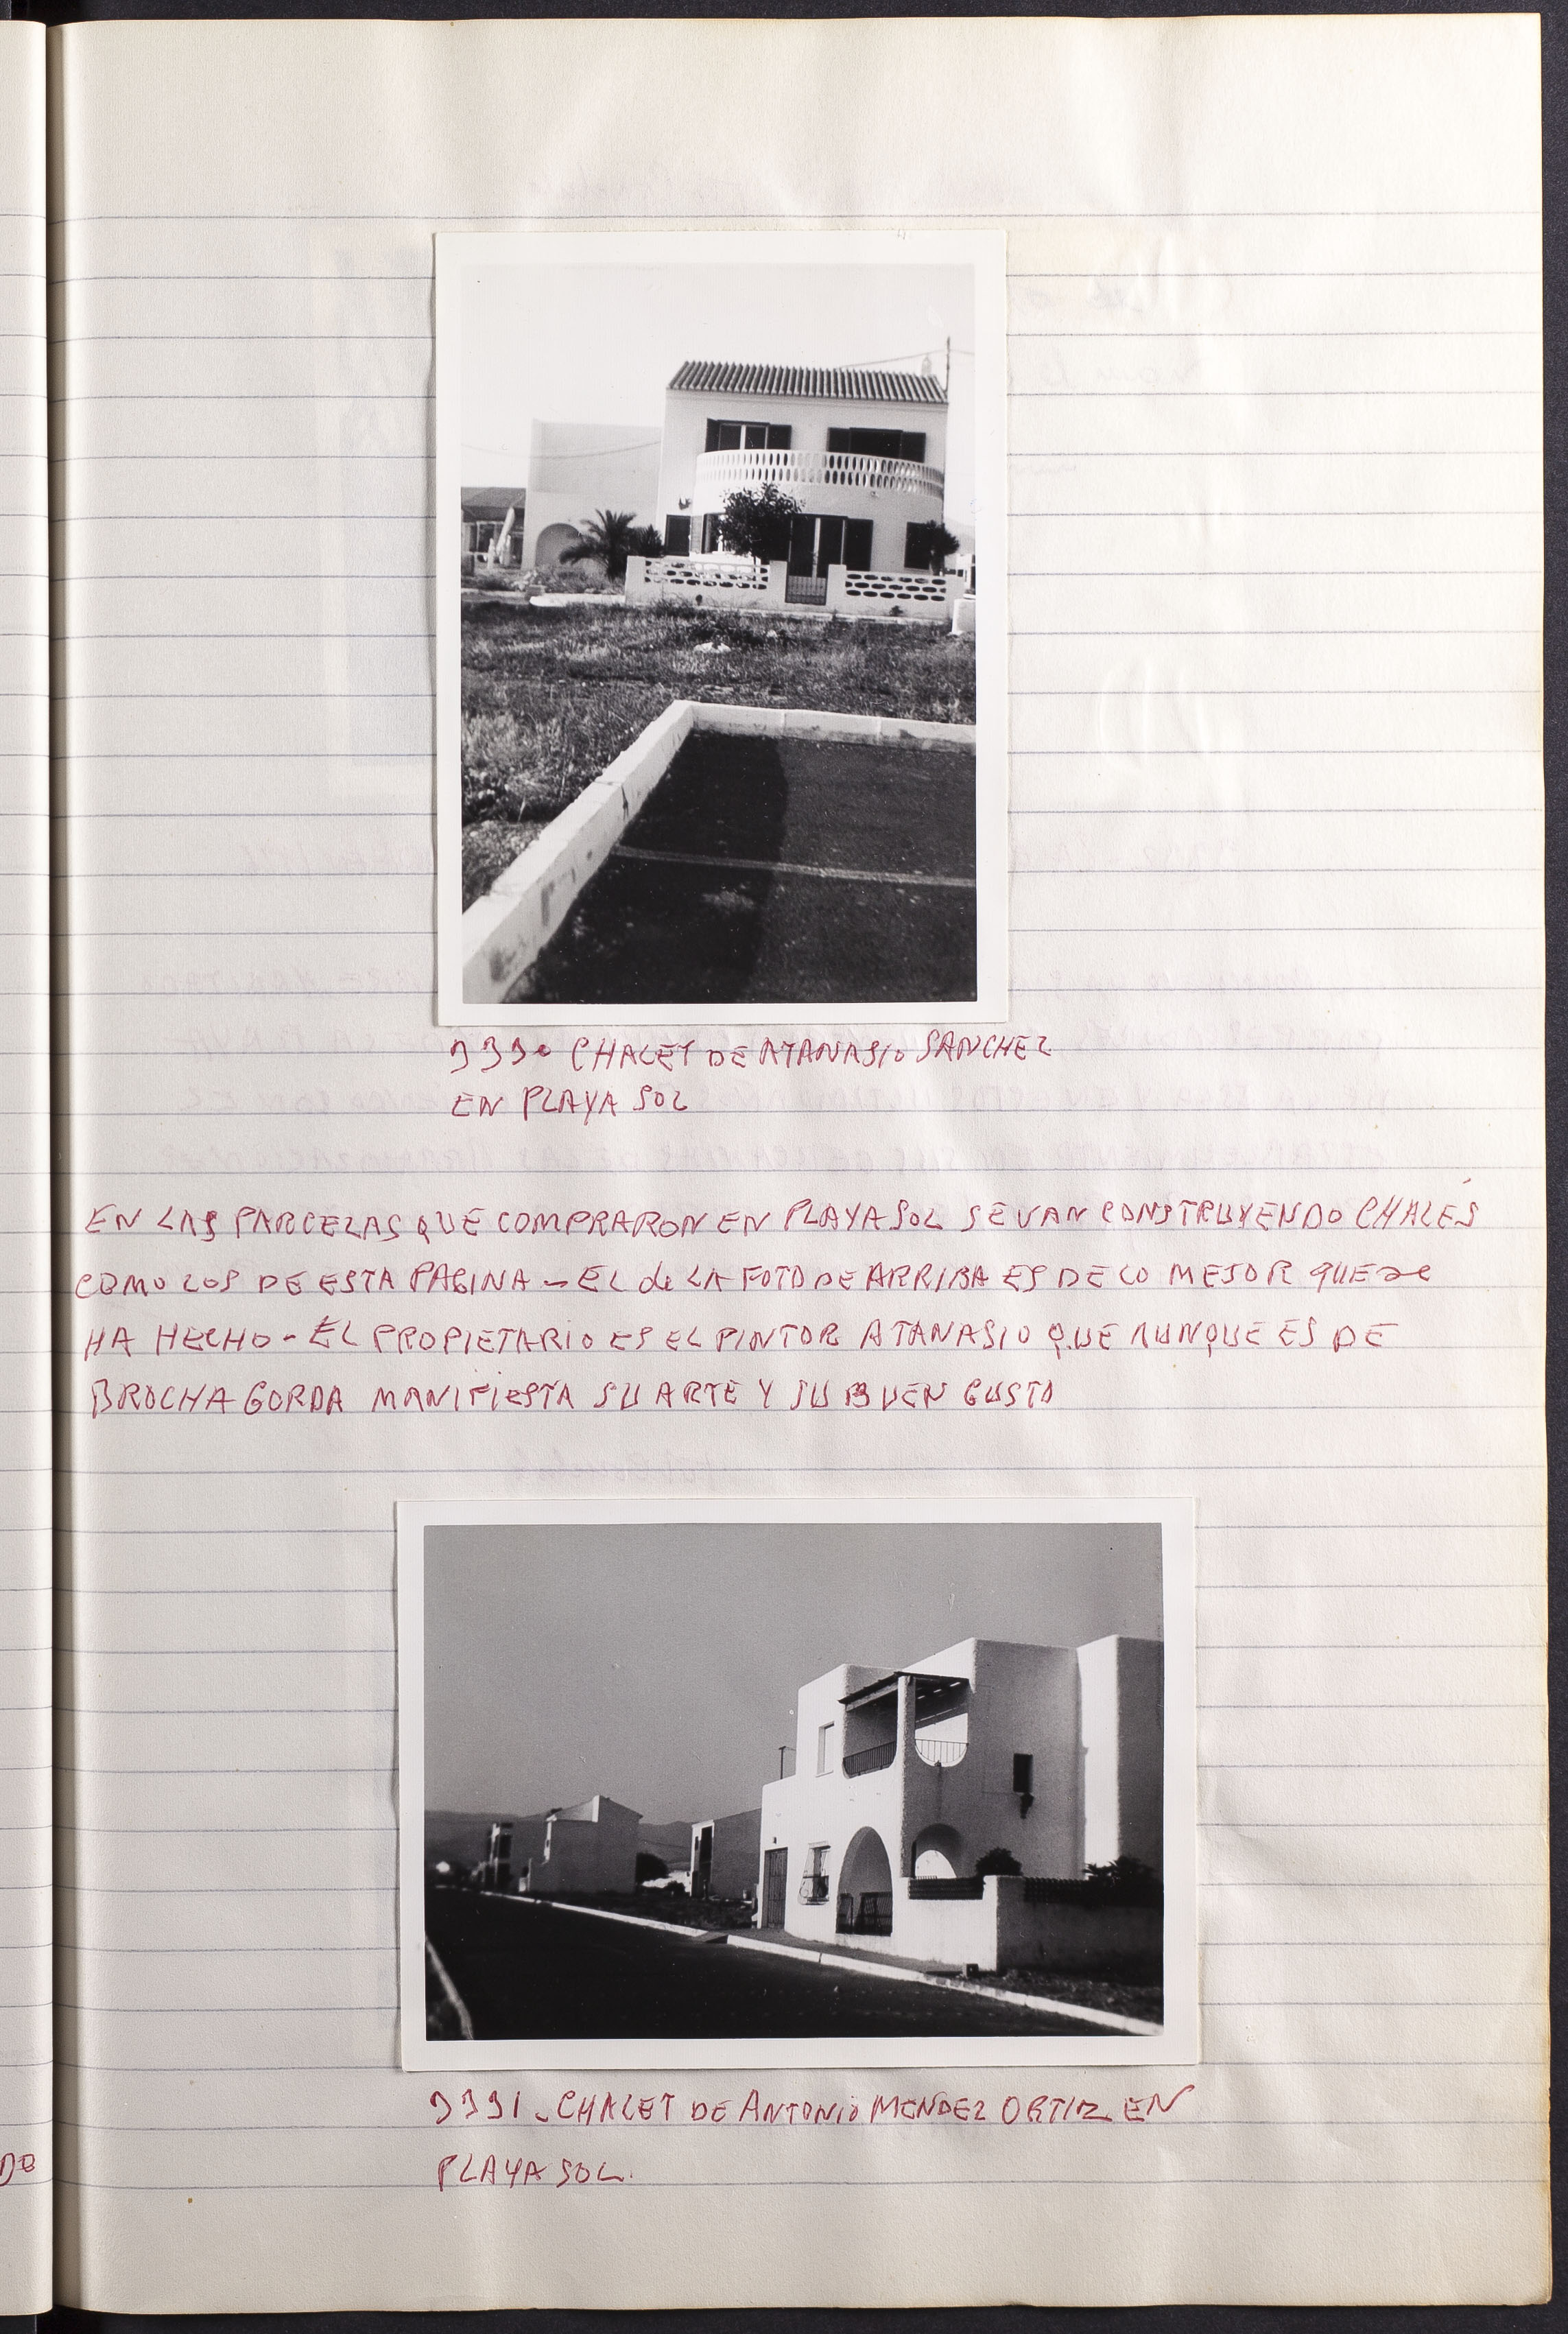 3330 CHALET DE ATANASIO SANCHEZ
EN PLAYA SOL
EN LAS PARCELAS QUE COMPRARON EN PLAYA SOL SE VAN CONSTRUYENDO CHALÉS
COMO LOS DE ESTA PAGINA - EL de LA FOTO DE ARRIBA ES DE LO MEJOR QUE se
HA HECHO - EL PROPIETARIO ES EL PINTOR ATANASIO QUE AUNQUE ES DE
BROCHA GORDA MANIFIESTA SU ARTE Y SU BUEN GUSTO
3331 - CHALET DE ANTONIO MENDEZ ORTIZ EN
PLAYA SOL.
DE